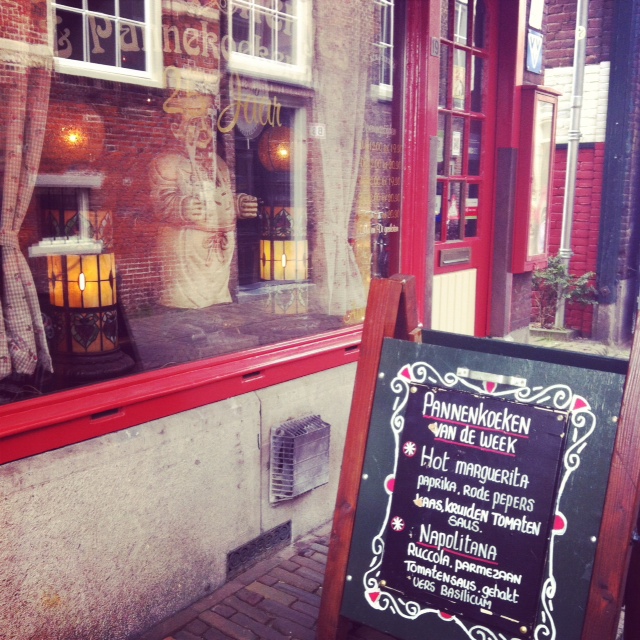 & Pannekoeken
PANNENKOEKEN
VAN DE WEEK
HOT MARGUERITA
PAPRIKA, RODE PEPERS
KAAS, KRUIDEN TOMATEN
SAUS.
NAPOLITANA
RUCCOLA, PARMEZAAN
TOMATENSAUS, gehakt
VERS BASILICUM